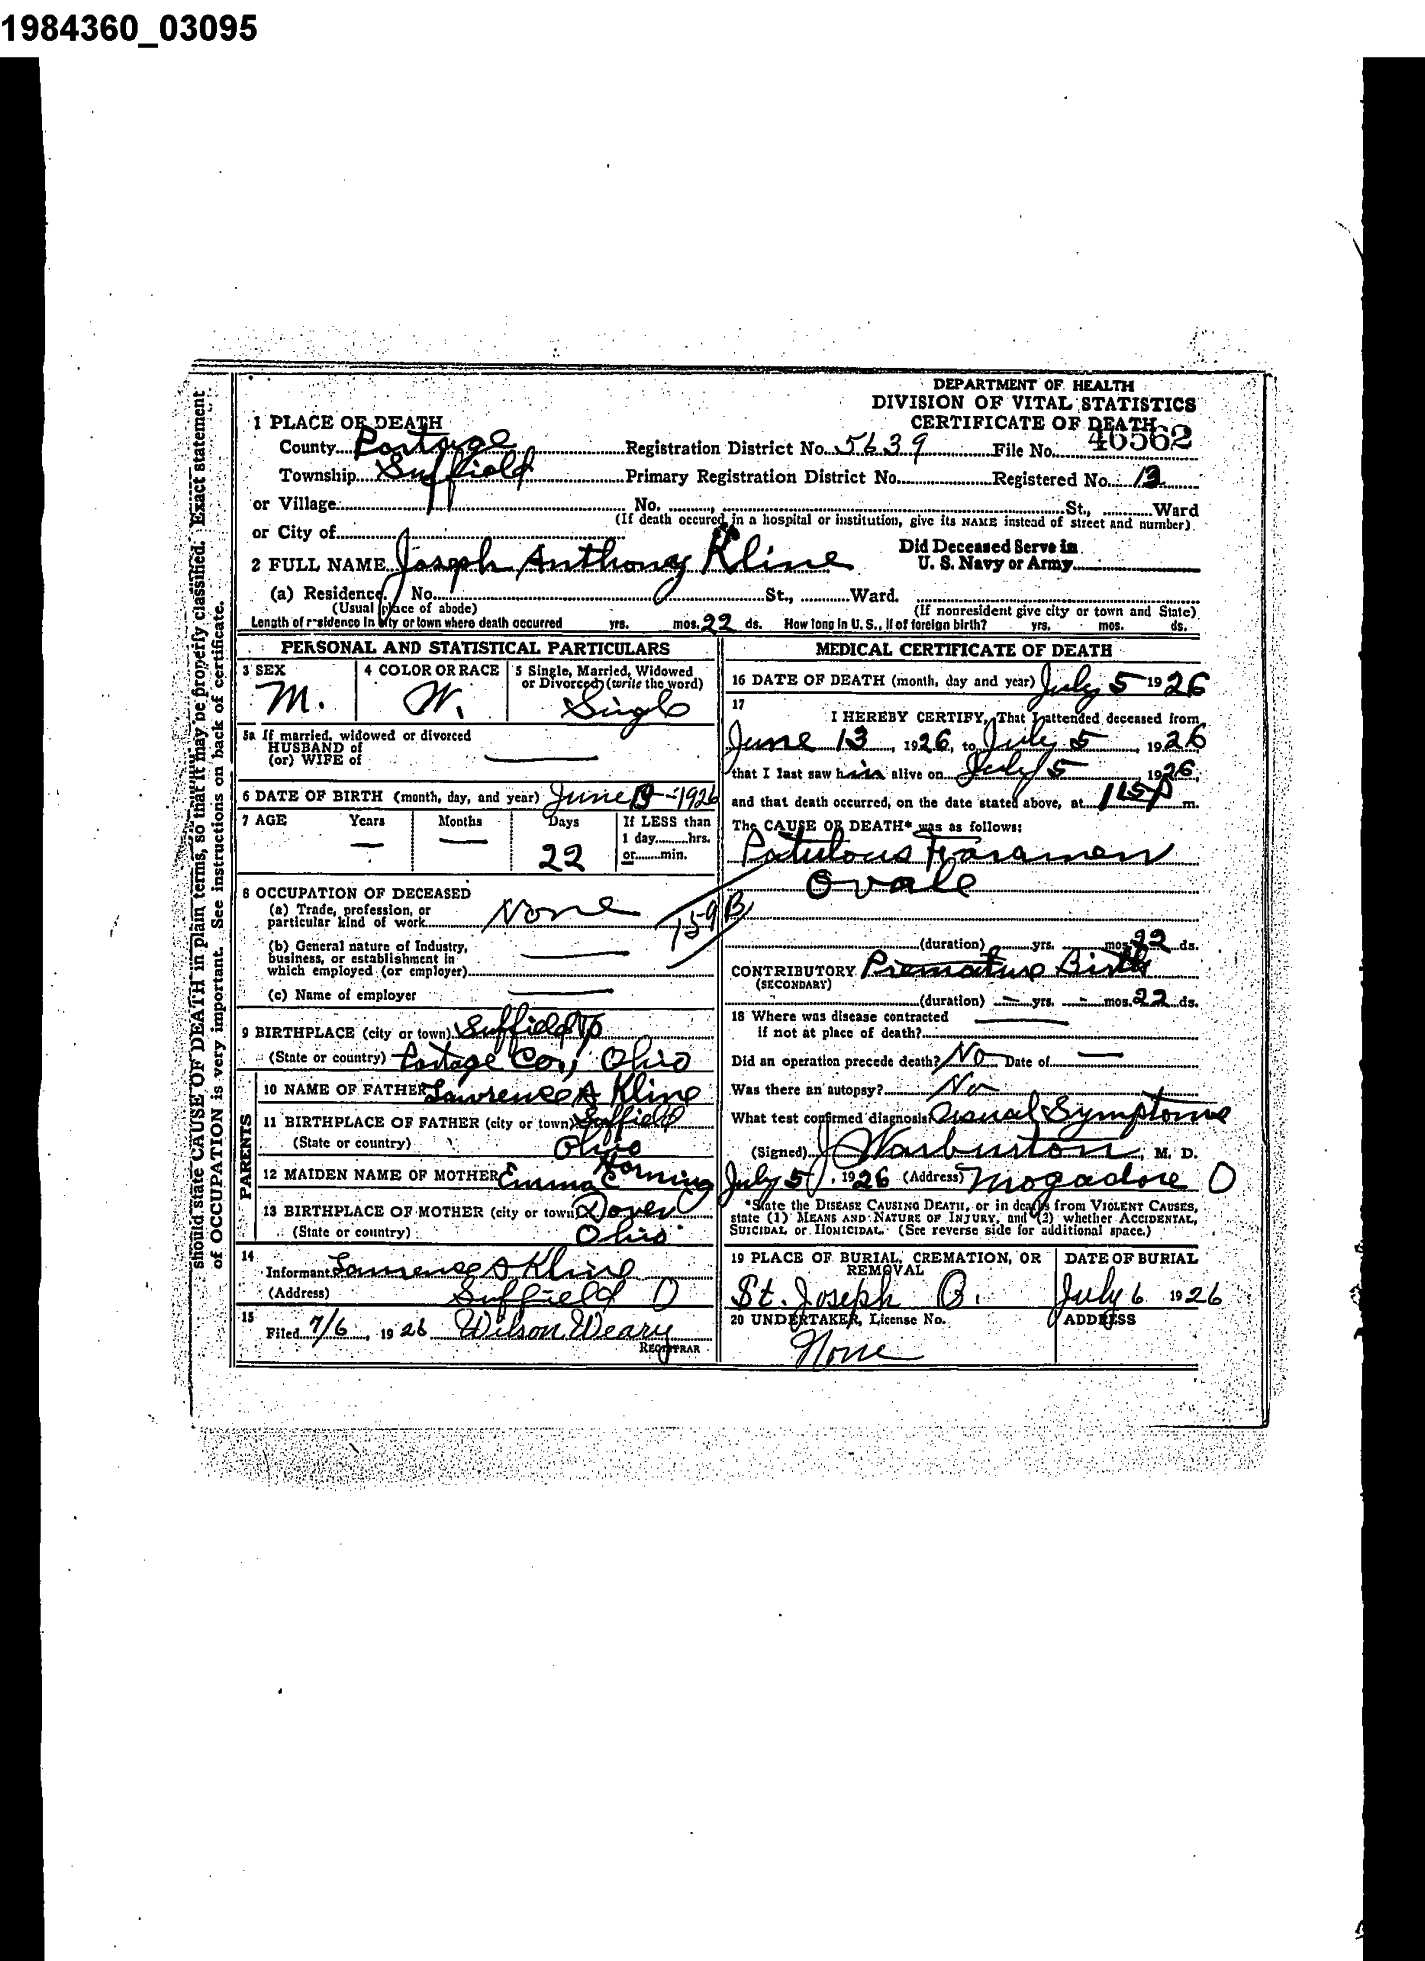 1984360_03095
DEPARTMENT OF HEALTH
DIVISION OF VITAL STATISTICS
CERTIFICATE OF DEATH
1 PLACE OF DEATH
County Portage Registration District No. 5639 File No. 46562
Township Suffield Primary Registration District No. Registered No. 13
or Village No. St., Ward
(If death occured in a hospital or institution, give its NAME instead of street and number)
or City of
2 FULL NAME Joseph Anthony Kline Did Deceased Serve in U. S. Navy or Army
(a) Residence. No. St., Ward.
(Usual place of abode) (If nonresident give city or town and State)
Length of residence in city or town where death occurred yrs. mos. 22 ds. How long in U. S., if of foreign birth? yrs. mos. ds.
PERSONAL AND STATISTICAL PARTICULARS
3 SEX M.
4 COLOR OR RACE W.
5 Single, Married, Widowed or Divorced (write the word) Single
5a If married, widowed or divorced
HUSBAND of
(or) WIFE of —
6 DATE OF BIRTH (month, day, and year) June 13 - 1926
7 AGE Years — Months — Days 22 If LESS than 1 day hrs. or min.
8 OCCUPATION OF DECEASED
(a) Trade, profession, or particular kind of work None
(b) General nature of Industry, business, or establishment in which employed (or employer) —
(c) Name of employer —
9 BIRTHPLACE (city or town) Suffield Tp
(State or country) Portage Co., Ohio
PARENTS
10 NAME OF FATHER Lawrence A Kline
11 BIRTHPLACE OF FATHER (city or town) Suffield
(State or country) Ohio
12 MAIDEN NAME OF MOTHER Emma C Horning
13 BIRTHPLACE OF MOTHER (city or town) Dover
(State or country) Ohio
14 Informant Lawrence A Kline
(Address) Suffield O
15 Filed 7/6, 1926 Wilson Weary
REGISTRAR
MEDICAL CERTIFICATE OF DEATH
16 DATE OF DEATH (month, day and year) July 5 1926
17 I HEREBY CERTIFY, That I attended deceased from
June 13, 1926, to July 5, 1926
that I last saw him alive on July 5, 1926,
and that death occurred, on the date stated above, at 115 P m.
The CAUSE OF DEATH* was as follows:
Patulous Foramen
Ovale
159 B
(duration) yrs. mos. 22 ds.
CONTRIBUTORY Premature Birth
(SECONDARY)
(duration) — yrs. — mos. 22 ds.
18 Where was disease contracted
if not at place of death? —
Did an operation precede death? No Date of —
Was there an autopsy? No
What test confirmed diagnosis? Usual Symptoms
(Signed) J Warburton, M. D.
July 5, 1926 (Address) Mogadore O
*State the DISEASE CAUSING DEATH, or in deaths from VIOLENT CAUSES,
state (1) MEANS AND NATURE OF INJURY, and (2) whether ACCIDENTAL,
SUICIDAL or HOMICIDAL. (See reverse side for additional space.)
19 PLACE OF BURIAL, CREMATION, OR REMOVAL St. Joseph O.
DATE OF BURIAL July 6 1926
20 UNDERTAKER, License No. None
ADDRESS
should state CAUSE OF DEATH in plain terms, so that it may be properly classified. Exact statement
of OCCUPATION is very important. See instructions on back of certificate.